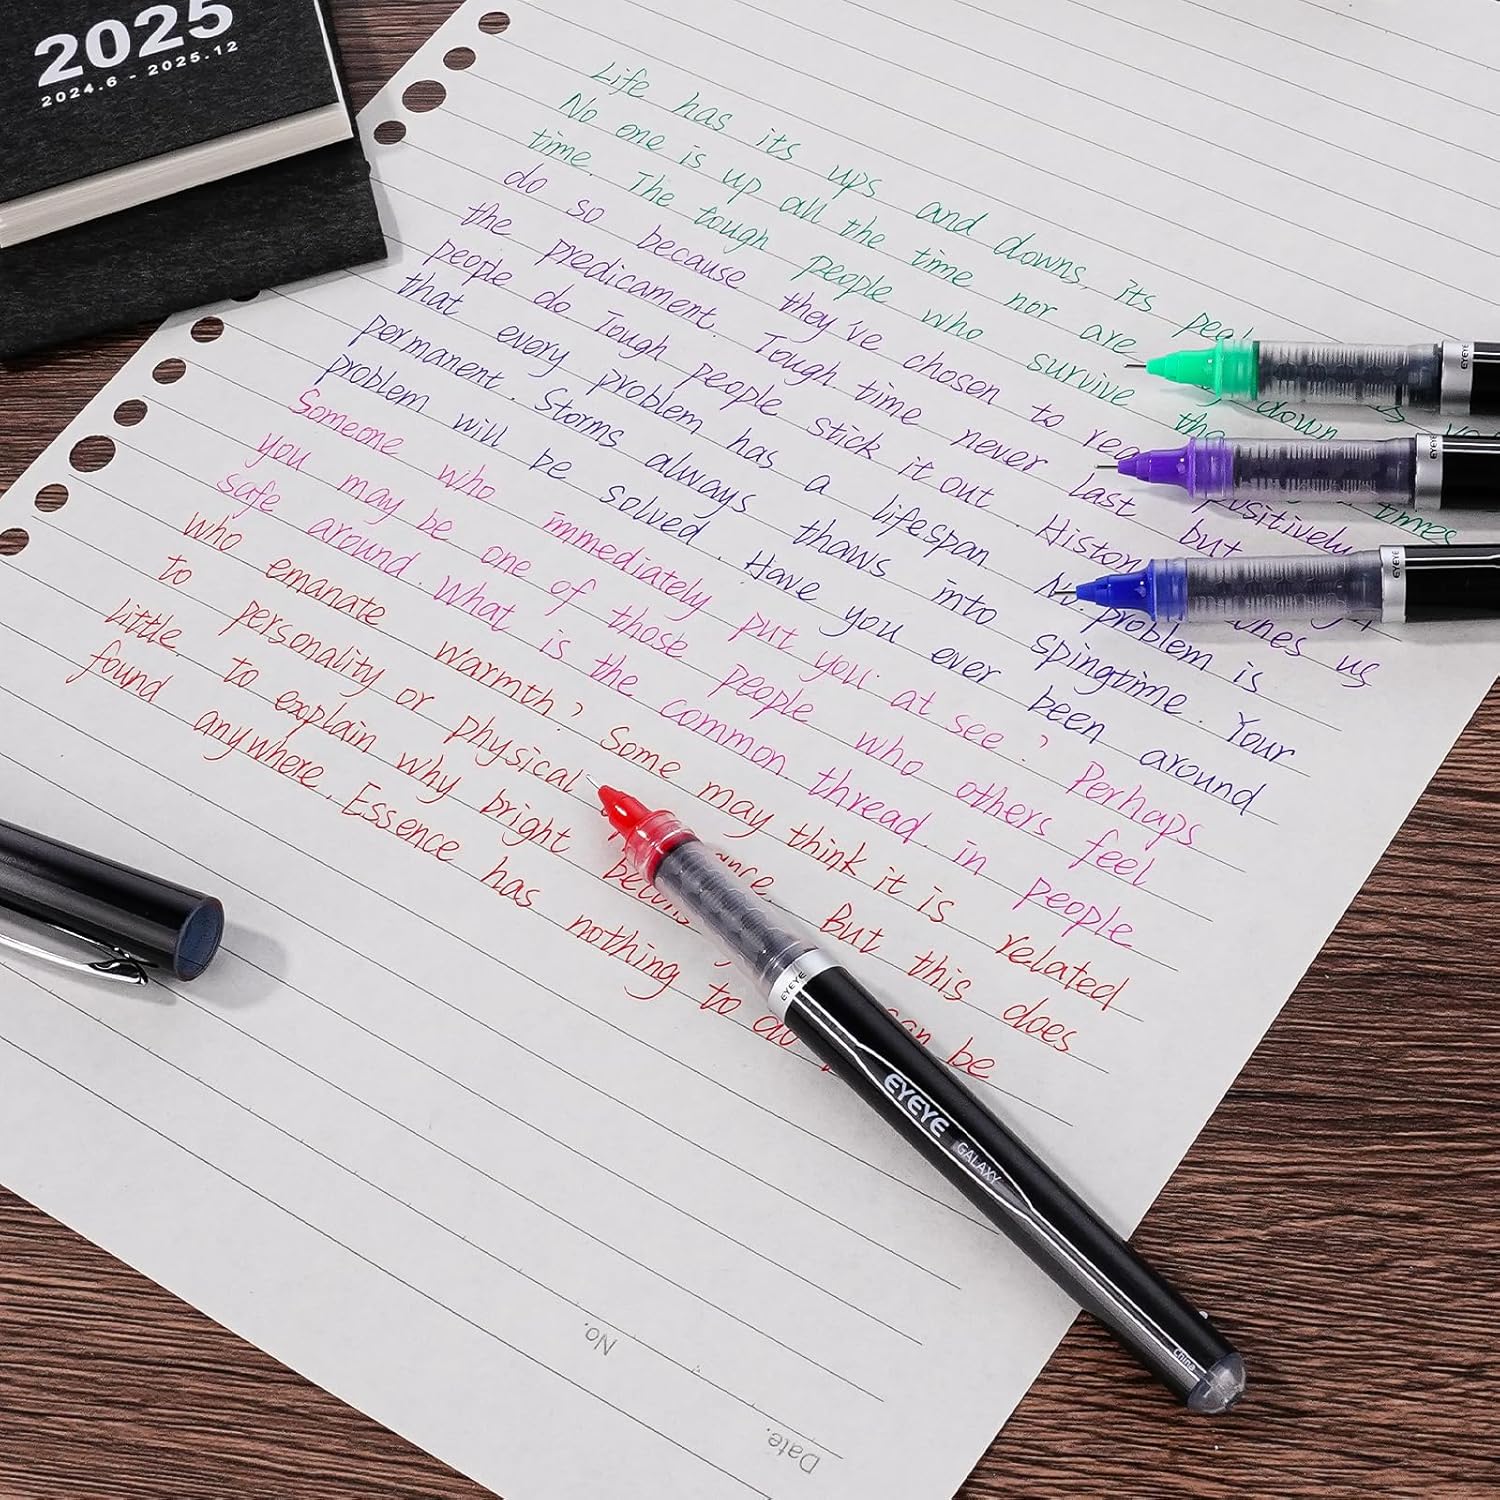 2025
2024.6 - 2025.12
Life has its ups and downs, its
No one is up all the time nor are down
time. The tough people who survive times
do so because they've chosen to positively
the predicament. Tough time never last but
people do Tough people stick it out us
that every problem has a lifespan No problem is
permanent. Storms always thaws into spingtime. Your
problem will be solved. Have you ever been around
Someone who immediately put you at see? Perhaps
you may be one of those people who others feel
safe around. What is the common thread in people
who emanate warmth? Some may think it is related
to personality or physical But this does
Little to explain why bright can be
found anywhere. Essence has nothing to do
EYEYE
EYEYE
EYEYE
EYEYE
EYEYE GALAXY
China
No.
Date.